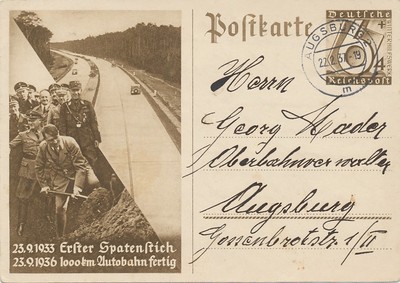 Postkarte
Deutsche
WINTERHILFSWERK
6+4
Reichspost
AUGSBURG 2
22.2.37.-19
m
Herrn
Georg Mader
Oberbahnverwalter
Augsburg
Gossenbrotstr. 1/II
23.9.1933 Erster Spatenstich
23.9.1936 1000 km Autobahn fertig